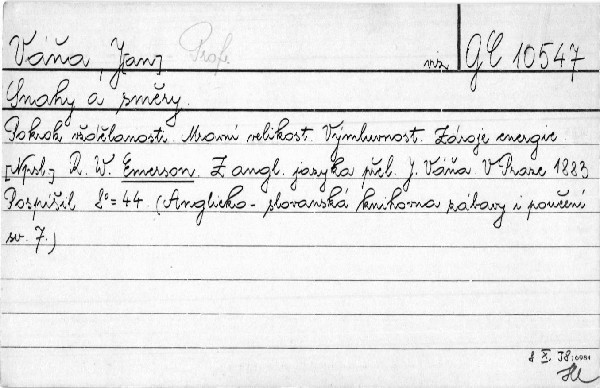 Váňa, J[an] Profe
viz GČ 10547
Snahy a směry.
Pokrok vzdělanosti. Mravní velikost. Výmluvnost. Zdroje energie.
[Npsl.] R. W. Emerson. Z angl. jazyka přel. J. Váňa. V Praze 1883
Pospíšil 8°= 44. (Anglicko-slovanská knihovna zábavy i poučení
sv. 7.)
8 X. 58